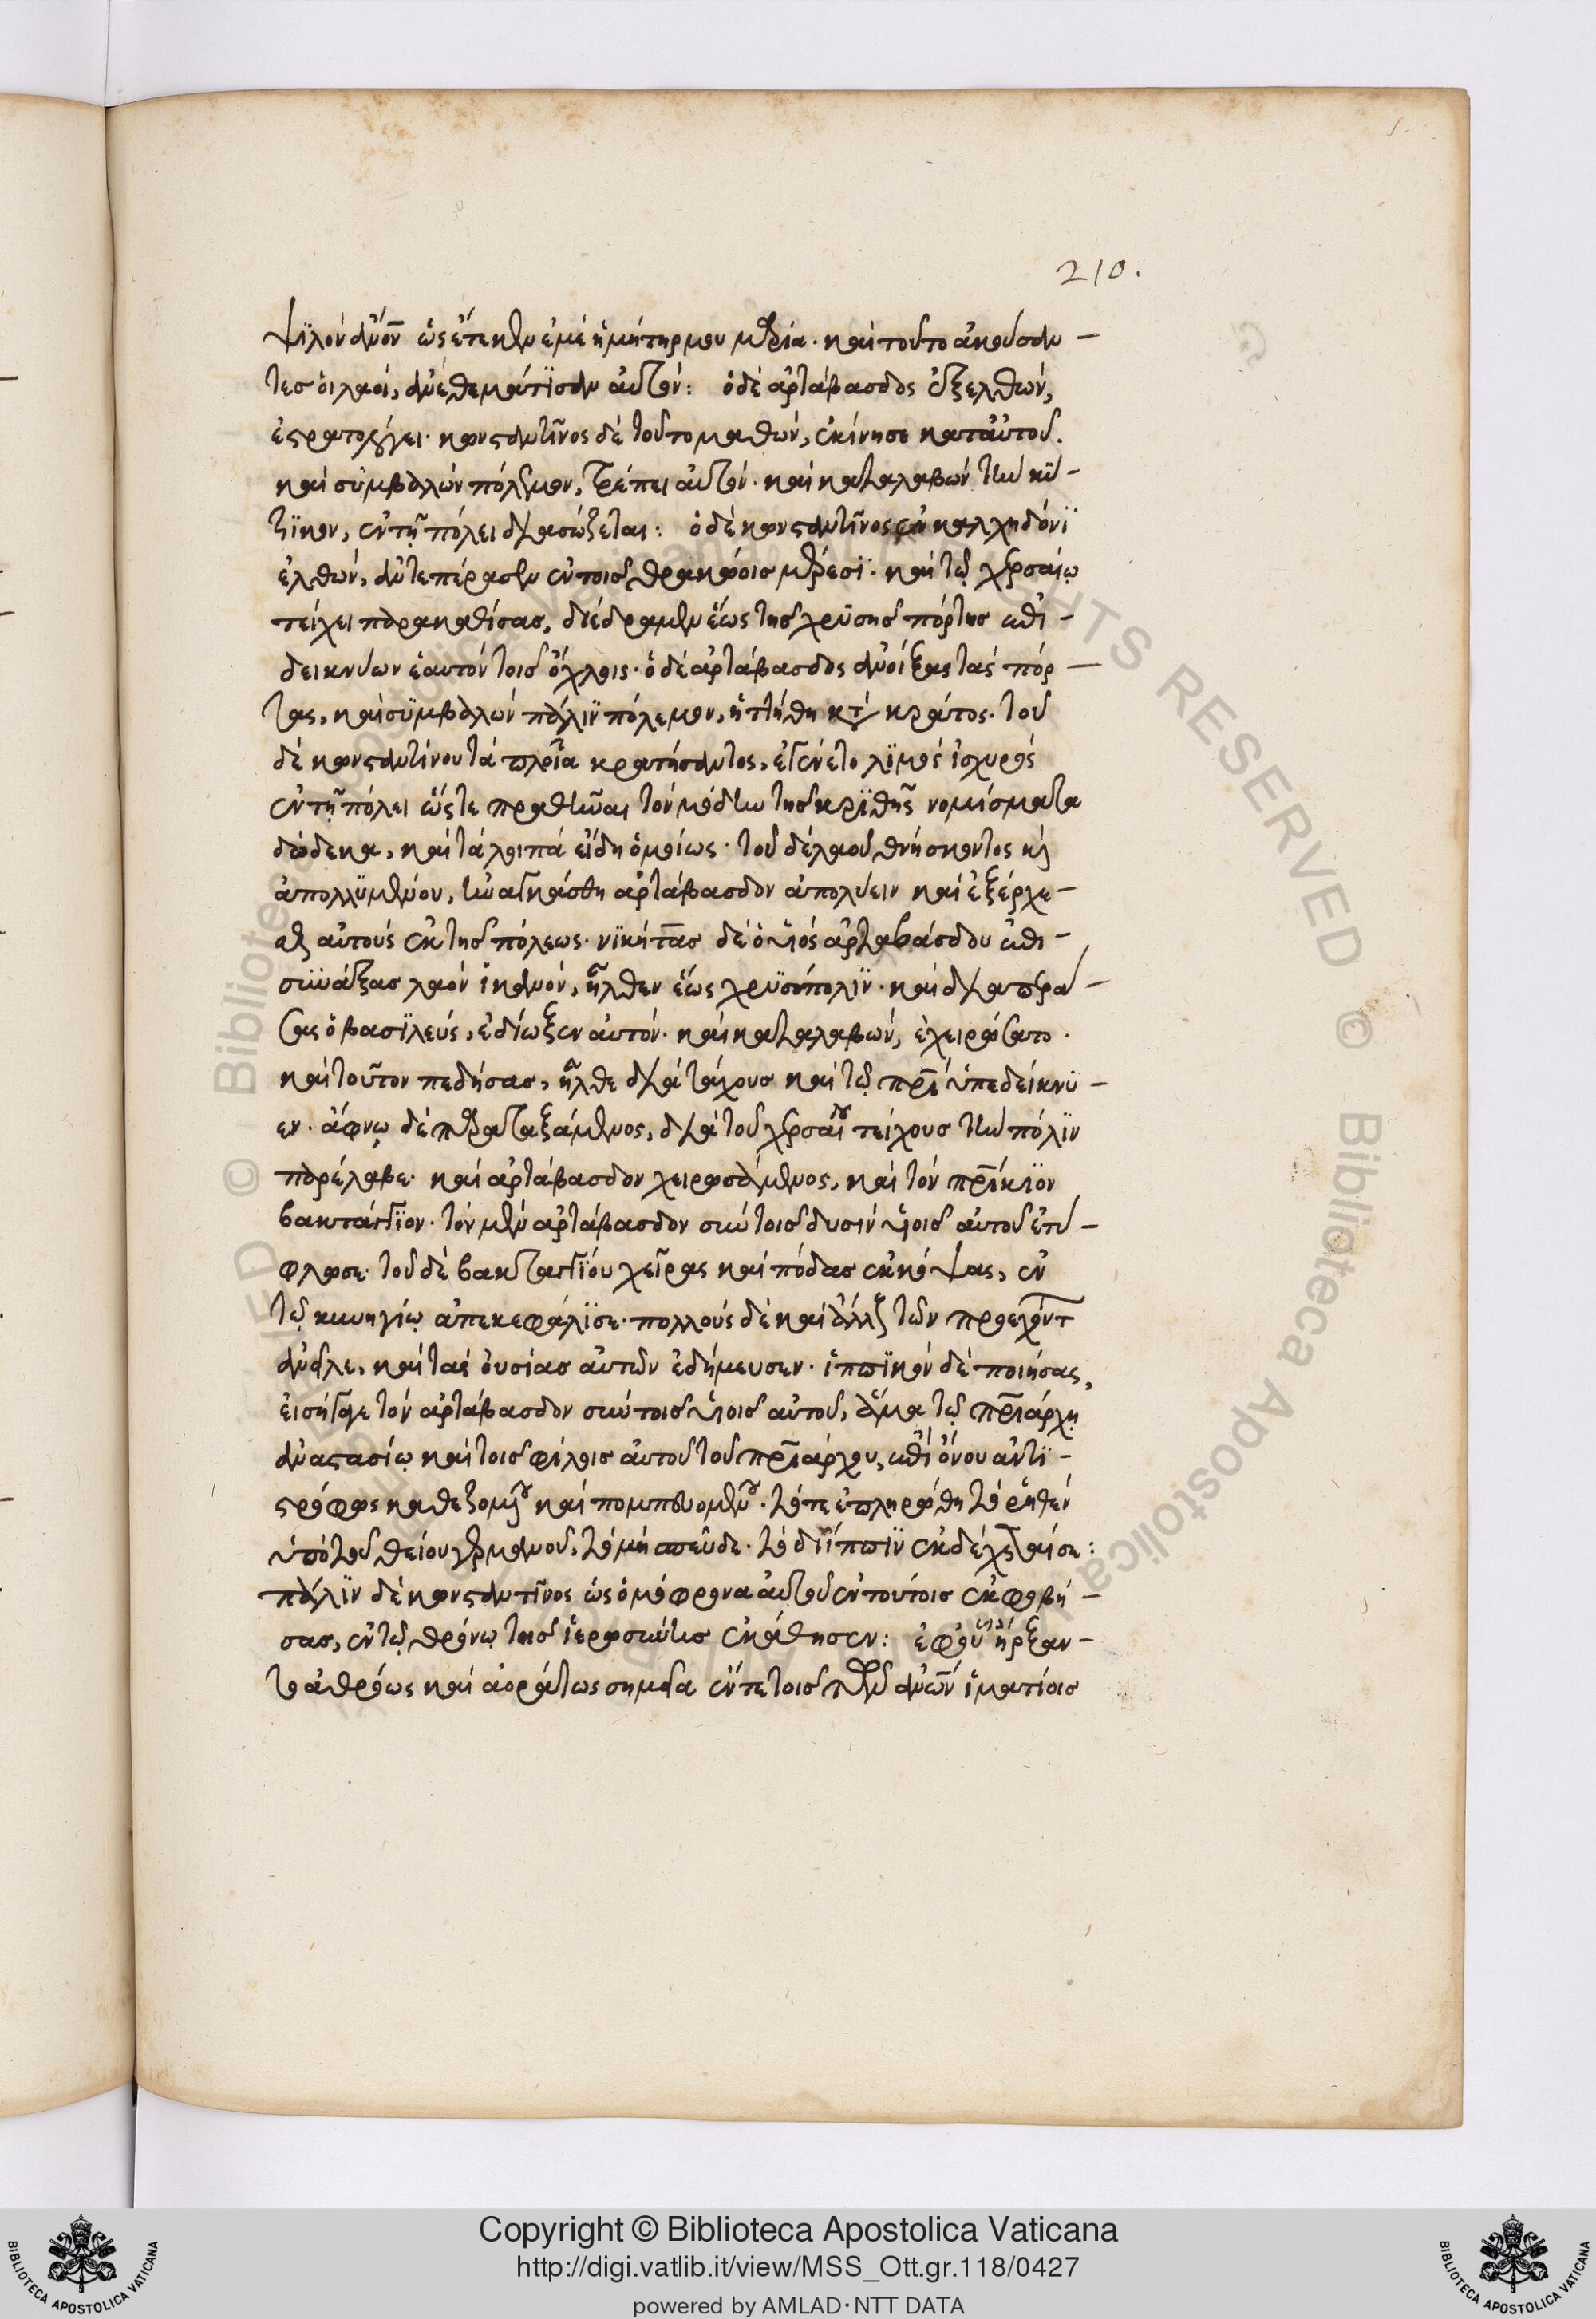 210.
ψϊλὸν ἄνον ὡς ἔτεκεν ἐμὲ ἡ μήτηρ μου μαρία· καὶ τοῦτο ἀκούσαν-
τες οἱ λαοί, ἀνεθεμάτϊσαν αὐτόν: ὁ δὲ ἀρτάβασδος ἐξελθών,
ἐστρατολόγει· κωνσταντῖνος δὲ τοῦτο μαθών, ἐκίνησε κατ' αὐτοῦ.
καὶ συμβαλὼν πόλεμον, τρέπει αὐτόν· καὶ καταλαβὼν τὴν κϋ-
ζϊκον, ἐν τῇ πόλει διασώζεται: ὁ δὲ κωνσταντῖνος ἐν καλχηδόνϊ
ἐλθών, ἀντεπέρασεν ἐν τοῖς θρακώοις μέρεσϊ· καὶ τῷ χερσαίῳ
τείχει παρακαθίσας, διέδραμεν ἕως τῆς χρϋσῆς πόρτης ἐπι-
δεικνύων ἑαυτὸν τοῖς ὄχλοις· ὁ δὲ ἀρτάβασδος ἀνοίξας τὰς πόρ-
τας, καὶ συμβαλὼν πάλϊν πόλεμον, ἡττήθη κατὰ κράτος· τοῦ
δὲ κωνσταντίνου τὰ πλοῖα κρατήσαντος, ἐγένετο λϊμὸς ἰσχυρὸς
ἐν τῇ πόλει ὥστε πραθῆναι τὸν μόδιν τῆς κρϊθῆς νομίσματα
δώδεκα, καὶ τὰ λοιπὰ εἴδη ὁμοίως· τοῦ δὲ λαοῦ θνήσκοντος κ(αὶ)
ἀπολλϋμένου, ἠναγκάσθη ἀρτάβασδον ἀπολύειν καὶ ἐξέρχε-
σθαι αὐτοὺς ἐκ τῆς πόλεως· νϊκήτας δὲ ὁ υἱὸς ἀρταβάσδου ἐπι-
συνάξας λαὸν ἱκανόν, ἦλθεν ἕως χρϋσόπολϊν· καὶ διαπερά-
σας ὁ βασϊλεύς, ἐδίωξεν αὐτόν· καὶ καταλαβών, ἐχειρώσατο·
καὶ τοῦτον πεδήσας, ἦλθε διὰ τάχους καὶ τῷ πρϊ ὑπεδείκνυ-
εν· ἄφνω δὲ παραταξάμενος, διὰ τοῦ χερσαίου τείχους τὴν πόλϊν
παρέλαβε· καὶ ἀρτάβασδον χειρωσάμενος, καὶ τὸν πρίκϊον
βακτάγϊον· τὸν μὲν ἀρτάβασδον σὺν τοῖς δυσὶν υἱοῖς αὐτοῦ ἐτύ-
φλωσε· τοῦ δὲ βακταγϊου χεῖρας καὶ πόδας ἐκκόψας, ἐν
τῷ κυνηγίῳ ἀπεκεφάλϊσε· πολλοὺς δὲ καὶ ἄλλους τῶν προειχόντ
ἀνεῖλε, καὶ τὰς οὐσίας αὐτῶν ἐδήμευσεν· ἱππϊκὸν δὲ ποιήσας,
εἰσήγαγε τὸν ἀρτάβασδον σὺν τοῖς υἱοῖς αὐτοῦ, ἅμα τῷ πριάρχῃ
ἀναστασίῳ καὶ τοῖς φίλοις αὐτοῦ τοῦ πριάρχου, ἐπὶ ὄνου ἀντϊ-
στρόφως καθεζομένου καὶ πομπευομένου· τότε ἐπληρώθη τὸ ῥηθὲν
ὑπὸ τοῦ θείου γερμανοῦ, τὸ μὴ σπεῦδε· τὸ διίππϊν ἐκδέχεταί σε:
πάλϊν δὲ κωνσταντῖνος ὡς ὁμόφρονα αὐτοῦ ἐν τούτοις ἐκφοβή-
σας, ἐν τῷ θρόνῳ τῆς ἱερωσύνης ἐκάθησεν: ἐφ' οὗ ἤρξαν-
το ἀθρόως καὶ ἀοράτως σημεῖα ἔν τε τοῖς τῶν ἀνων ἱματίοις
Copyright © Biblioteca Apostolica Vaticana
http://digi.vatlib.it/view/MSS_Ott.gr.118/0427
powered by AMLAD·NTT DATA